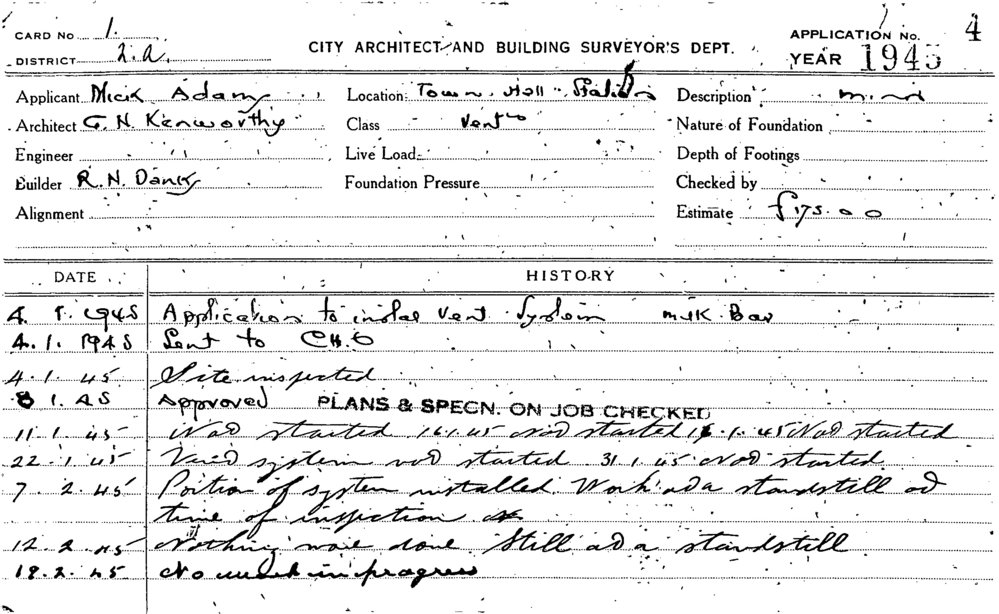 CARD No 1.
DISTRICT 2.A.
CITY ARCHITECT AND BUILDING SURVEYOR'S DEPT.
APPLICATION No. 4
YEAR 1945
Applicant Mick Adams Location Town Hall Station Description
Architect G. N. Kenworthy Class Vent Nature of Foundation
Engineer Live Load Depth of Footings
Builder R. N. Danks Foundation Pressure Checked by
Alignment Estimate £175.00
DATE HISTORY
4. 1. 1945 Application to instal Vent System Milk Bar
4. 1. 1945 Sent to CHO
4.1.45 Site inspected
8 1. 45 Approved PLANS & SPECN. ON JOB CHECKED
11.1.45 Not started 16.1.45 Not started 1.45 Not started
22.1.45 system not started 31.1.45 Not started
7.2.45 Portion of system installed. Work at a standstill at
time of inspection
12.2.45 Nothing more done. Still at a standstill
19.2.45 No work in progress